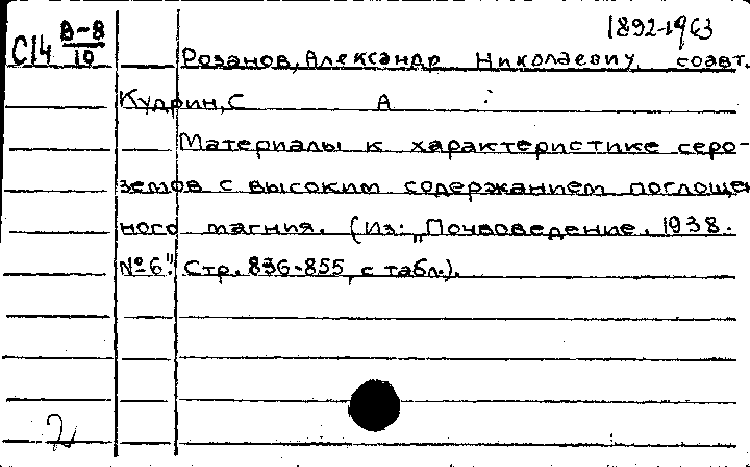 1892-1963
С14 В-8/10 Розанов, Александр Николаевич, соавт.
Кудрин, С А
Материалы к характеристике серо-
земов с высоким содержанием поглощен
ного магния. (Из: „Почвоведение. 1938.
№6". Стр. 836-855, с табл.).
2